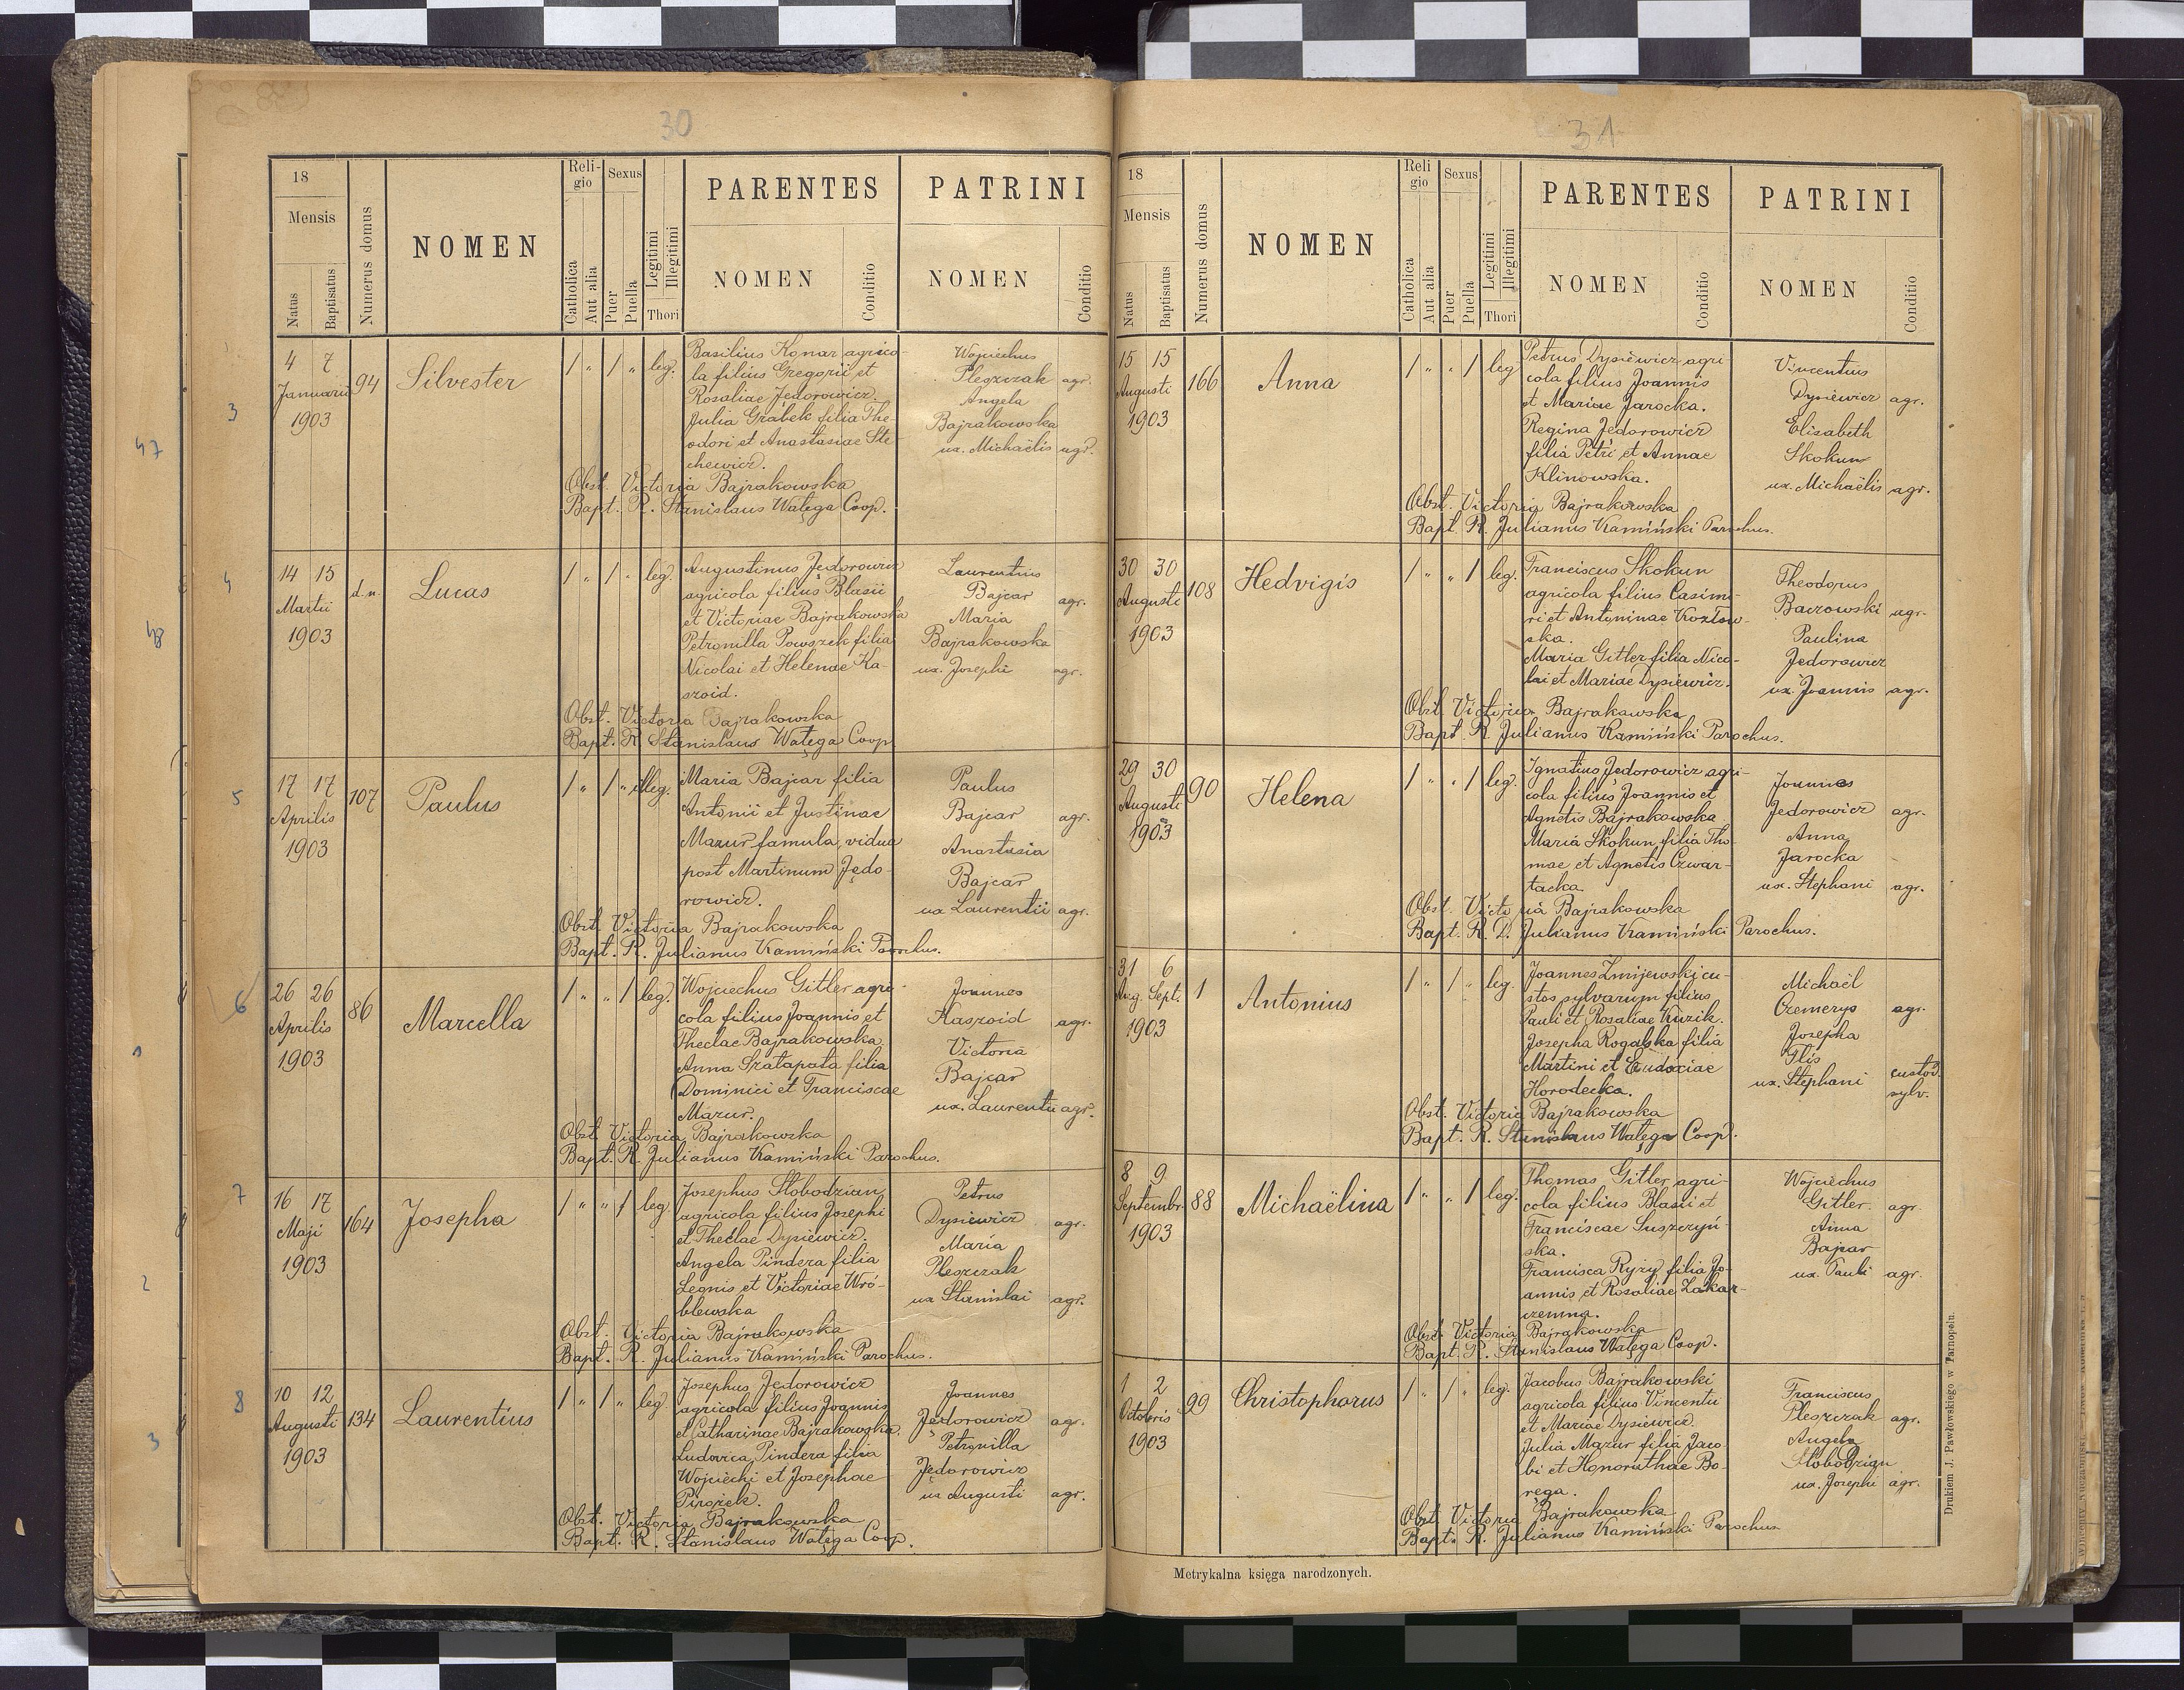 30
18
Mensis
Natus
Baptisatus
Numerus domus
NOMEN
Reli-
gio
Catholica
Aut alia
Sexus
Puer
Puella
Legitimi
Illegitimi
Thori
PARENTES
NOMEN
Conditio
PATRINI
NOMEN
Conditio
3
4 7
Januarii
1903
94
Silvester
1 „ 1 „ leg.
Basilius Kgnar agrico-
la filius Gregorii et
Rosaliae Jedorowicz.
Julia Grabek filia The-
odori et Anastasiae Ste-
chewicz.
Wojciechus
Pleszczak agr.
Angela
Bajrakowska
ux. Michaëlis agr.
Obst. Victoria Bajrakowska
Bapt. R. Stanislaus Watęga Coop.
47
4
14 15
Martii
1903
d. n.
Lucas
1 „ 1 „ leg.
Augustinus Jedorowicz
agricola filius Blasii
et Victoriae Bajrakowska
Petronilla Powszek filia
Nicolai et Helenae Ka-
szoid.
Laurentius
Bajcar agr.
Maria
Bajrakowska
ux. Josephi agr.
Obst. Victoria Bajrakowska
Bapt. R. Stanislaus Watęga Coop
48
5
17 17
Aprilis
1903
107
Paulus
1 „ 1 „ illeg.
Maria Bajcar filia
Antonii et Justinae
Mazur famula, vidua
post Martinum Jędo-
rowicz.
Paulus
Bajcar agr.
Anastasia
Bajcar
ux Laurentii agr.
Obst. Victoria Bajrakowska
Bapt. R. Julianus Kamiński Parochus.
6
26 26
Aprilis
1903
86
Marcella
1 „ „ 1 leg.
Wojciechus Gitler agri-
cola filius Joannis et
Theclae Bajrakowska.
Anna Szatapata filia
Dominici et Franciscae
Mazur.
Joannes
Kaszoid agr.
Victoria
Bajcar
ux. Laurentii agr.
Obst. Victoria Bajrakowska
Bapt. R. Julianus Kamiński Parochus.
7
16 17
Maji
1903
164
Josepha
1 „ „ 1 leg.
Josephus Stobodzian
agricola filius Josephi
et Theclae Dysiewicz.
Angela Pindera filia
Leonis et Victoriae Wró-
blewska
Petrus
Dysiewicz agr.
Maria
Pleszczak
ux Stanislai agr.
Obst. Victoria Bajrakowska
Bapt. R. Julianus Kamiński Parochus.
2
8
10 12
Augusti
1903
134
Laurentius
1 „ 1 „ leg.
Josephus Jędorowicz
agricola filius Joannis
et Catharinae Bajrakowska.
Ludovica Pindera filia
Wojciechi et Josephae
Pirożek.
Joannes
Jędorowicz agr.
Petronilla
Jędorowicz
ux Augusti agr.
Obst. Victoria Bajrakowska
Bapt. R. Stanislaus Watęga Coop.
3
31
18
Mensis
Natus
Baptisatus
Numerus domus
NOMEN
Reli
gio
Catholica
Aut alia
Sexus
Puer
Puella
Legitimi
Illegitimi
Thori
PARENTES
NOMEN
Conditio
PATRINI
NOMEN
Conditio
15 15
Augusti
1903
166
Anna
1 „ „ 1 leg
Petrus Dysiewicz agri-
cola filius Joannis
et Mariae Jarocka.
Regina Jedorowicz
filia Petri et Annae
Klinowska.
Vincentius
Dysiewicz agr.
Elisabeth
Skokun
ux. Michaëlis agr.
Obst. Victoria Bajrakowska
Bapt. R. Julianus Kamiński Parochus.
30 30
Augusti
1903
108
Hedvigis
1 „ „ 1 leg.
Franciscus Skokun
agricola filius Casimi-
ri et Antoninae Kozłow-
ska.
Maria Gitler filia Nico-
lai et Mariae Dysiewicz.
Theodorus
Baczowski agr.
Paulina
Jedorowicz
ux. Joannis agr.
Obst. Victoria Bajrakowska
Bapt. R. Julianus Kamiński Parochus.
29 30
Augusti
1903
90
Helena
1 „ „ 1 leg.
Ignatius Jędorowicz agri-
cola filius Joannis et
Agnetis Bajrakowska
Maria Skokun filia Tho-
mae et Agnetis Czwar-
tacka.
Joannes
Jedorowicz agr.
Anna
Jarocka
ux. Stephani agr.
Obst. Victoria Bajrakowska
Bapt. R. D. Julianus Kamiński Parochus.
31 6
Aug. Sept.
1903
1
Antonius
1 „ 1 „ leg.
Joannes Zmijewski cu-
stos sylvarum filius
Pauli et Rosaliae Kuzik.
Josepha Rogalska filia
Martini et Eudoxiae
Horodecka.
Michaël
Czemerys agr.
Josepha
Glis
ux. Stephani custod.
sylv.
Obst. Victoria Bajrakowska
Bapt. R. Stanislaus Watęga Coop.
8 9
Septembr.
1903
88
Michaëlina
1 „ „ 1 leg.
Thomas Gitler agri-
cola filius Blasii et
Franciscae Suszczyń-
ska.
Francisca Ryzy filia Jo-
annis et Rosaliae Zakar-
czemna.
Wojciechus
Gitler agr.
Anna
Bajcar
ux. Pauli agr.
Obst. Victoria Bajrakowska
Bapt. R. Stanislaus Watęga Coop.
1 2
Octobris
1903
99
Christophorus
1 „ 1 „ leg.
Jacobus Bajrakowski
agricola filius Vincentii
et Mariae Dysiewicz.
Julia Mazur filia Jaco-
bi et Honorathae Bo-
rega.
Franciscus
Pleszczak agr.
Angela
Stobodzian
ux. Josephi agr.
Obst. Victoria Bajrakowska
Bapt. R. Julianus Kamiński Parochus
Metrykalna księga narodzonych.
Drukiem J. Pawłowskiego w Tarnopolu.